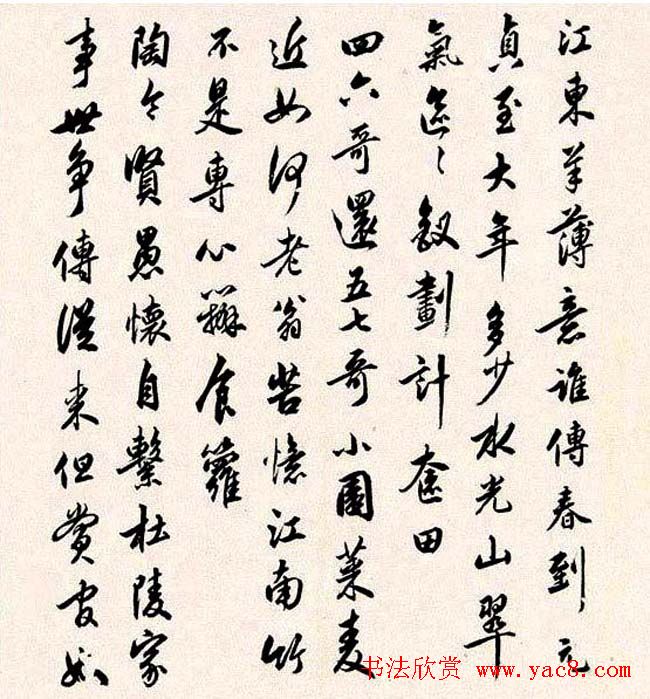 江東羊薄意誰傳春到〻元
貞至大年多少水光山翠
氣區〻釵劃計奩田
四六哥還五七哥小園菜麦
近如何老翁苦憶江南竹
不是專心辦食籮
陶令賢愚懷自繫杜陵家
事世爭傳從來但賞官奴
书法欣赏 www.yac8.com